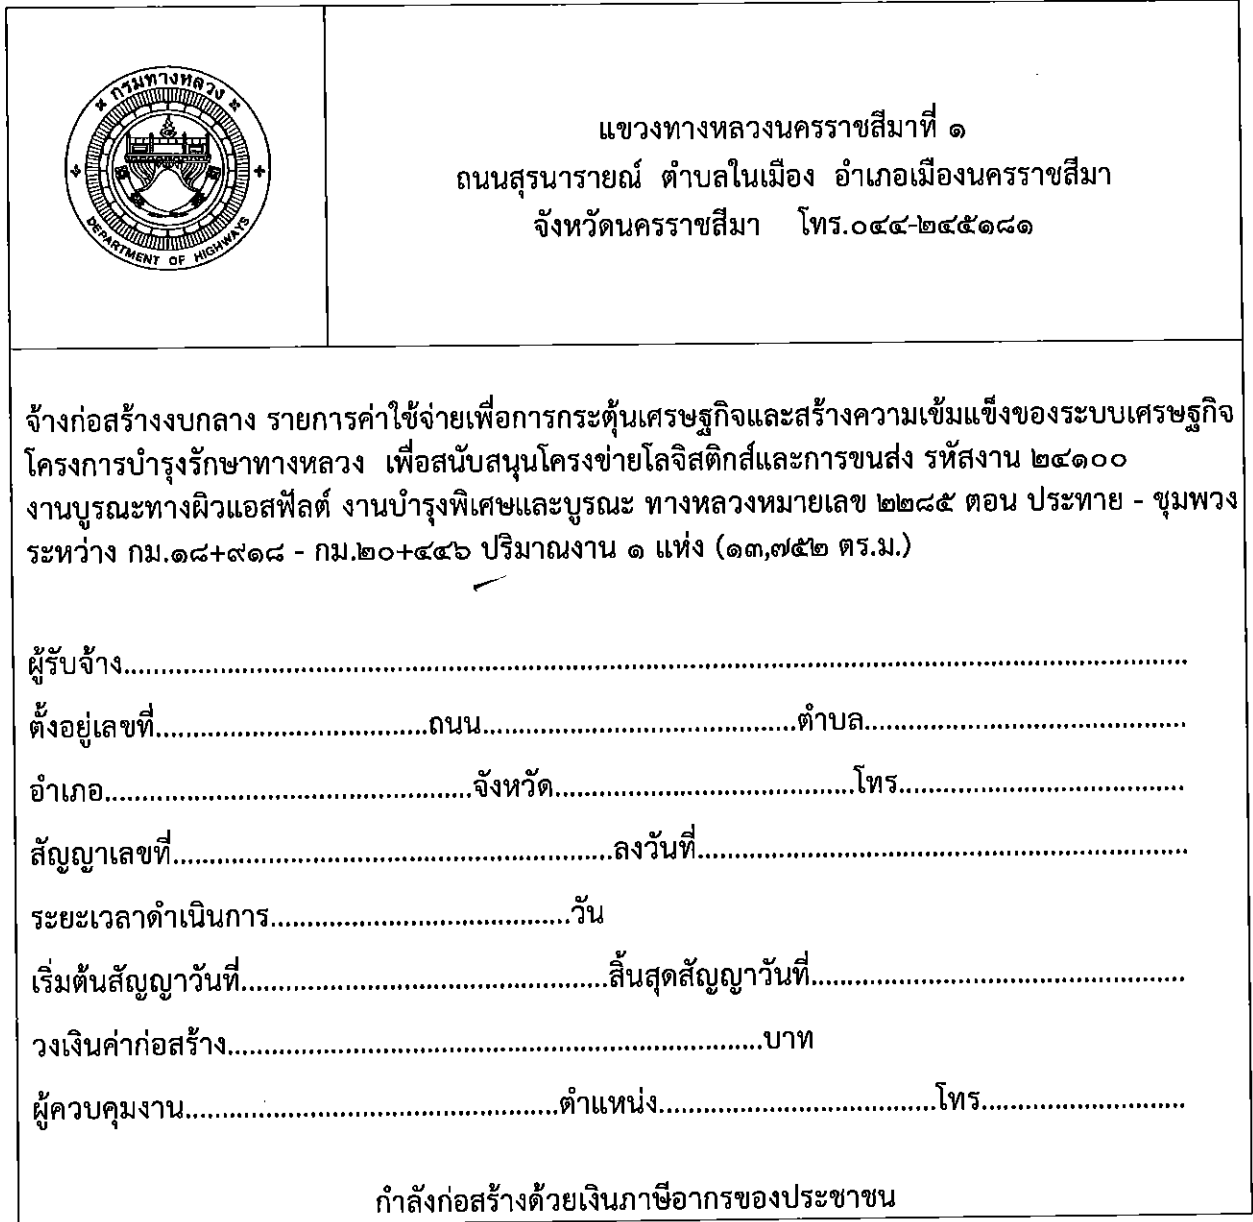 กรมทางหลวง
DEPARTMENT OF HIGHWAYS
แขวงทางหลวงนครราชสีมาที่ ๑
ถนนสุรนารายณ์ ตำบลในเมือง อำเภอเมืองนครราชสีมา
จังหวัดนครราชสีมา โทร.๐๔๔-๒๔๕๑๘๑
จ้างก่อสร้างงบกลาง รายการค่าใช้จ่ายเพื่อการกระตุ้นเศรษฐกิจและสร้างความเข้มแข็งของระบบเศรษฐกิจ
โครงการบำรุงรักษาทางหลวง เพื่อสนับสนุนโครงข่ายโลจิสติกส์และการขนส่ง รหัสงาน ๒๔๑๐๐
งานบูรณะทางผิวแอสฟัลต์ งานบำรุงพิเศษและบูรณะ ทางหลวงหมายเลข ๒๒๘๕ ตอน ประทาย - ชุมพวง
ระหว่าง กม.๑๘+๙๑๘ - กม.๒๐+๔๔๖ ปริมาณงาน ๑ แห่ง (๑๓,๗๕๒ ตร.ม.)
ผู้รับจ้าง....................................................................................................
ตั้งอยู่เลขที่....................................ถนน..........................................ตำบล..........................................
อำเภอ.................................................จังหวัด........................................โทร......................................
สัญญาเลขที่...........................................................ลงวันที่.................................................................
ระยะเวลาดำเนินการ........................................วัน
เริ่มต้นสัญญาวันที่.................................................สิ้นสุดสัญญาวันที่..................................................
วงเงินค่าก่อสร้าง.......................................................................บาท
ผู้ควบคุมงาน..................................................ตำแหน่ง.....................................โทร...........................
กำลังก่อสร้างด้วยเงินภาษีอากรของประชาชน